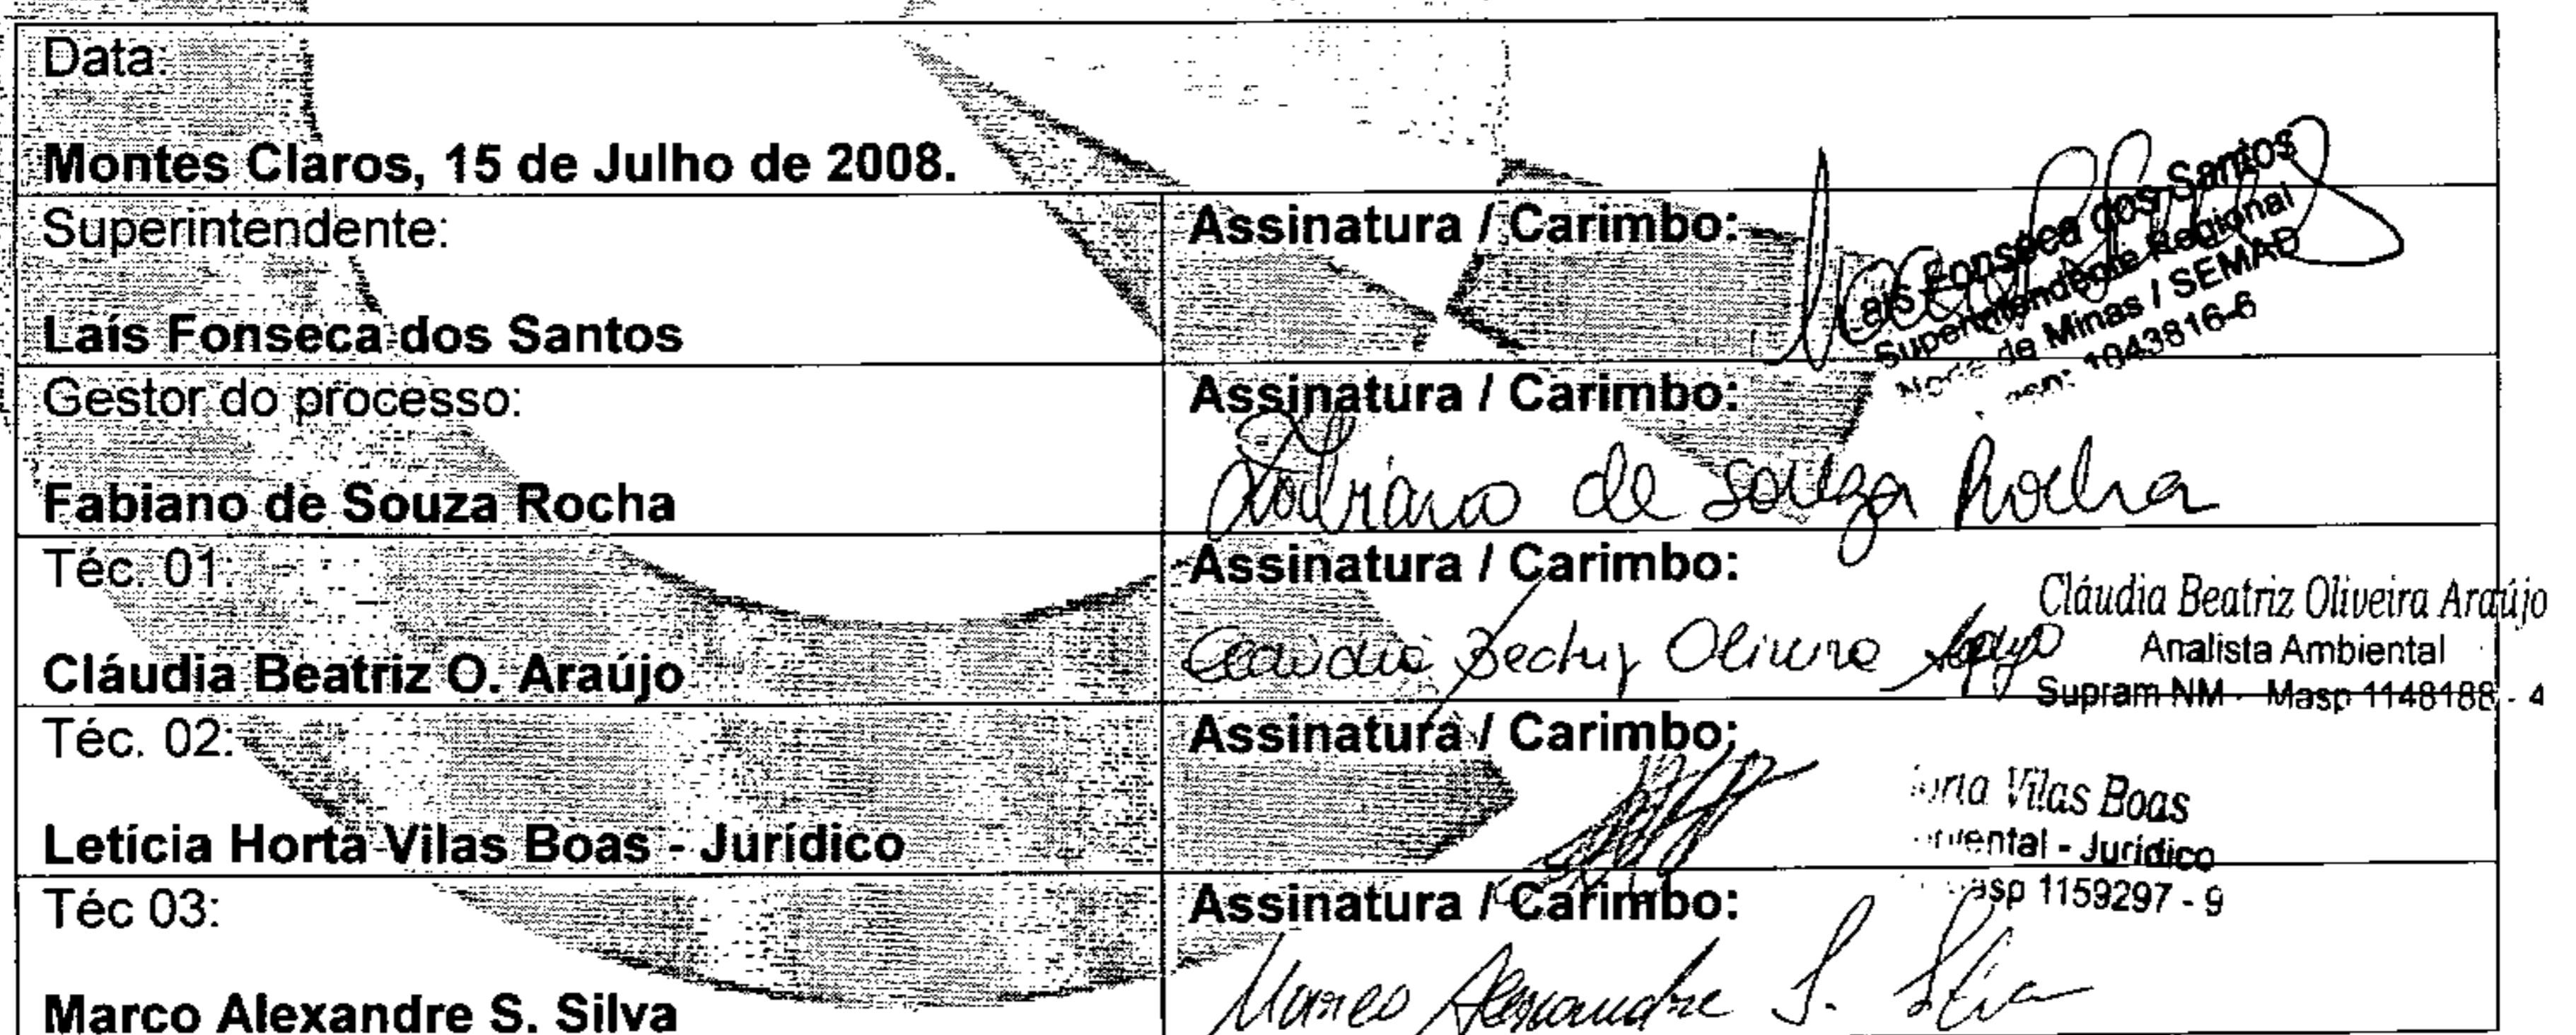 Data:
Montes Claros, 15 de Julho de 2008.
Superintendente:
Laís Fonseca dos Santos
Assinatura / Carimbo:
Laís Fonseca dos Santos
Superintendente Regional
Norte de Minas / SEMAD
Masp: 1043816-6
Gestor do processo:
Fabiano de Souza Rocha
Assinatura / Carimbo:
Fabiano de Souza Rocha
Téc. 01:
Cláudia Beatriz O. Araújo
Assinatura / Carimbo:
Claudia Beatriz Oliveira Araújo
Cláudia Beatriz Oliveira Araújo
Analista Ambiental
Supram NM - Masp 1148188 - 4
Téc. 02:
Letícia Horta Vilas Boas - Jurídico
Assinatura / Carimbo:
Vilas Boas
- Jurídico
1159297 - 9
Téc 03:
Marco Alexandre S. Silva
Assinatura / Carimbo:
Marco Alexandre S. Silva